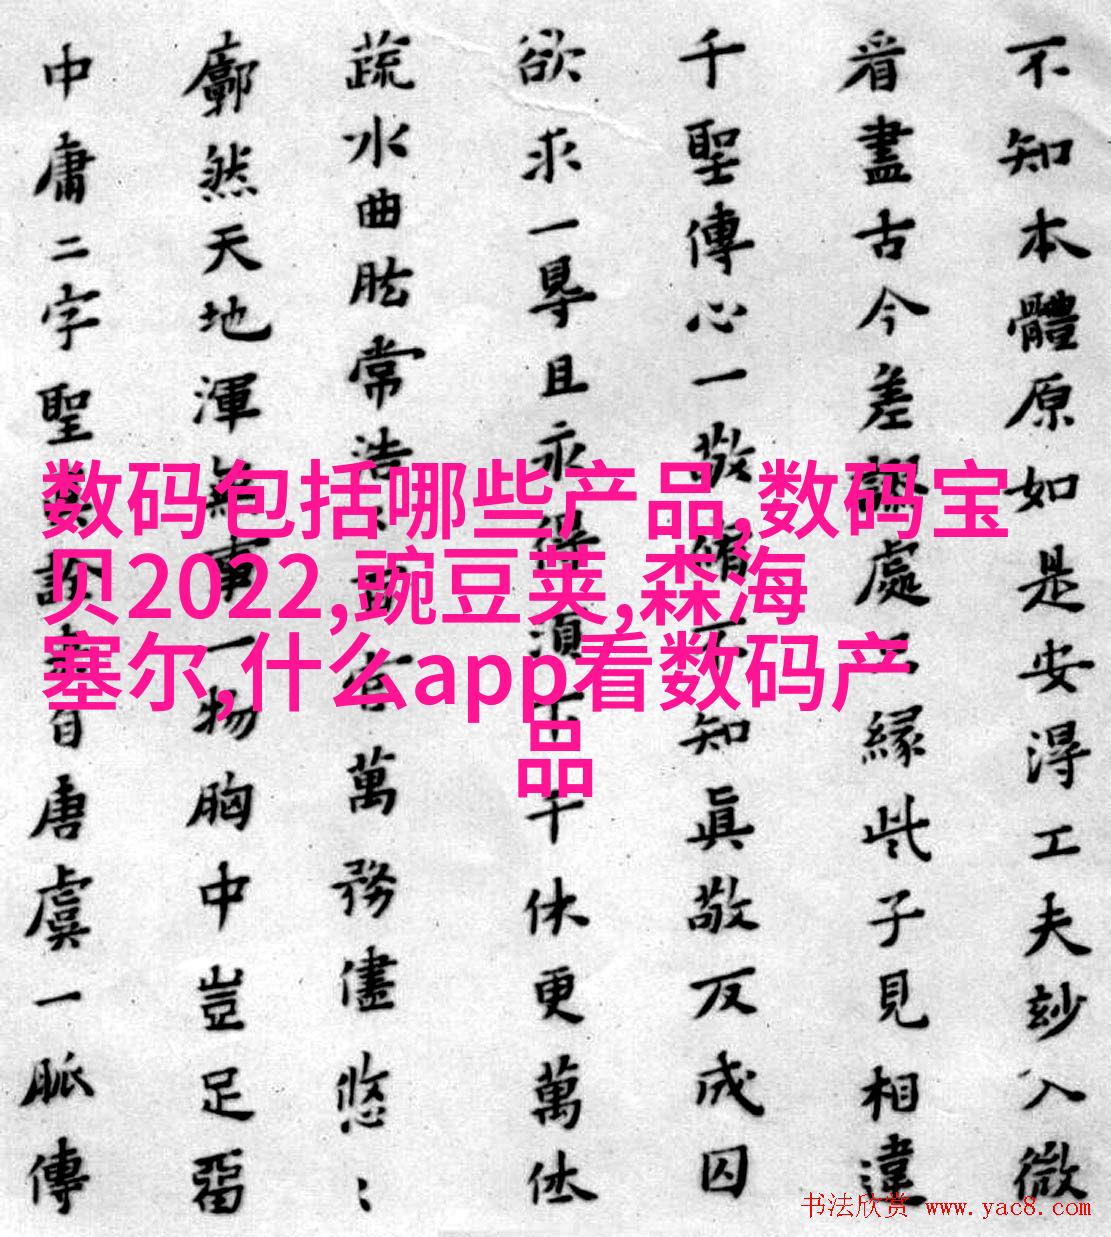 数码包括哪些产品,数码宝
贝2022,豌豆荚,森海
塞尔,什么app看数码产
品
不知本體原如是安淂工夫玅入微
看盡古今差處緣此子見相違
千聖傳心一敬脩不知眞敬反成囚
欲求一㝵且永得須下千休更萬休
蔬水曲肱常浩萬務儘悠〻
廓然天地渾無事一物胸中豈足留
中庸二字聖自唐虞一脈傳
书法欣赏 www.yac8.com